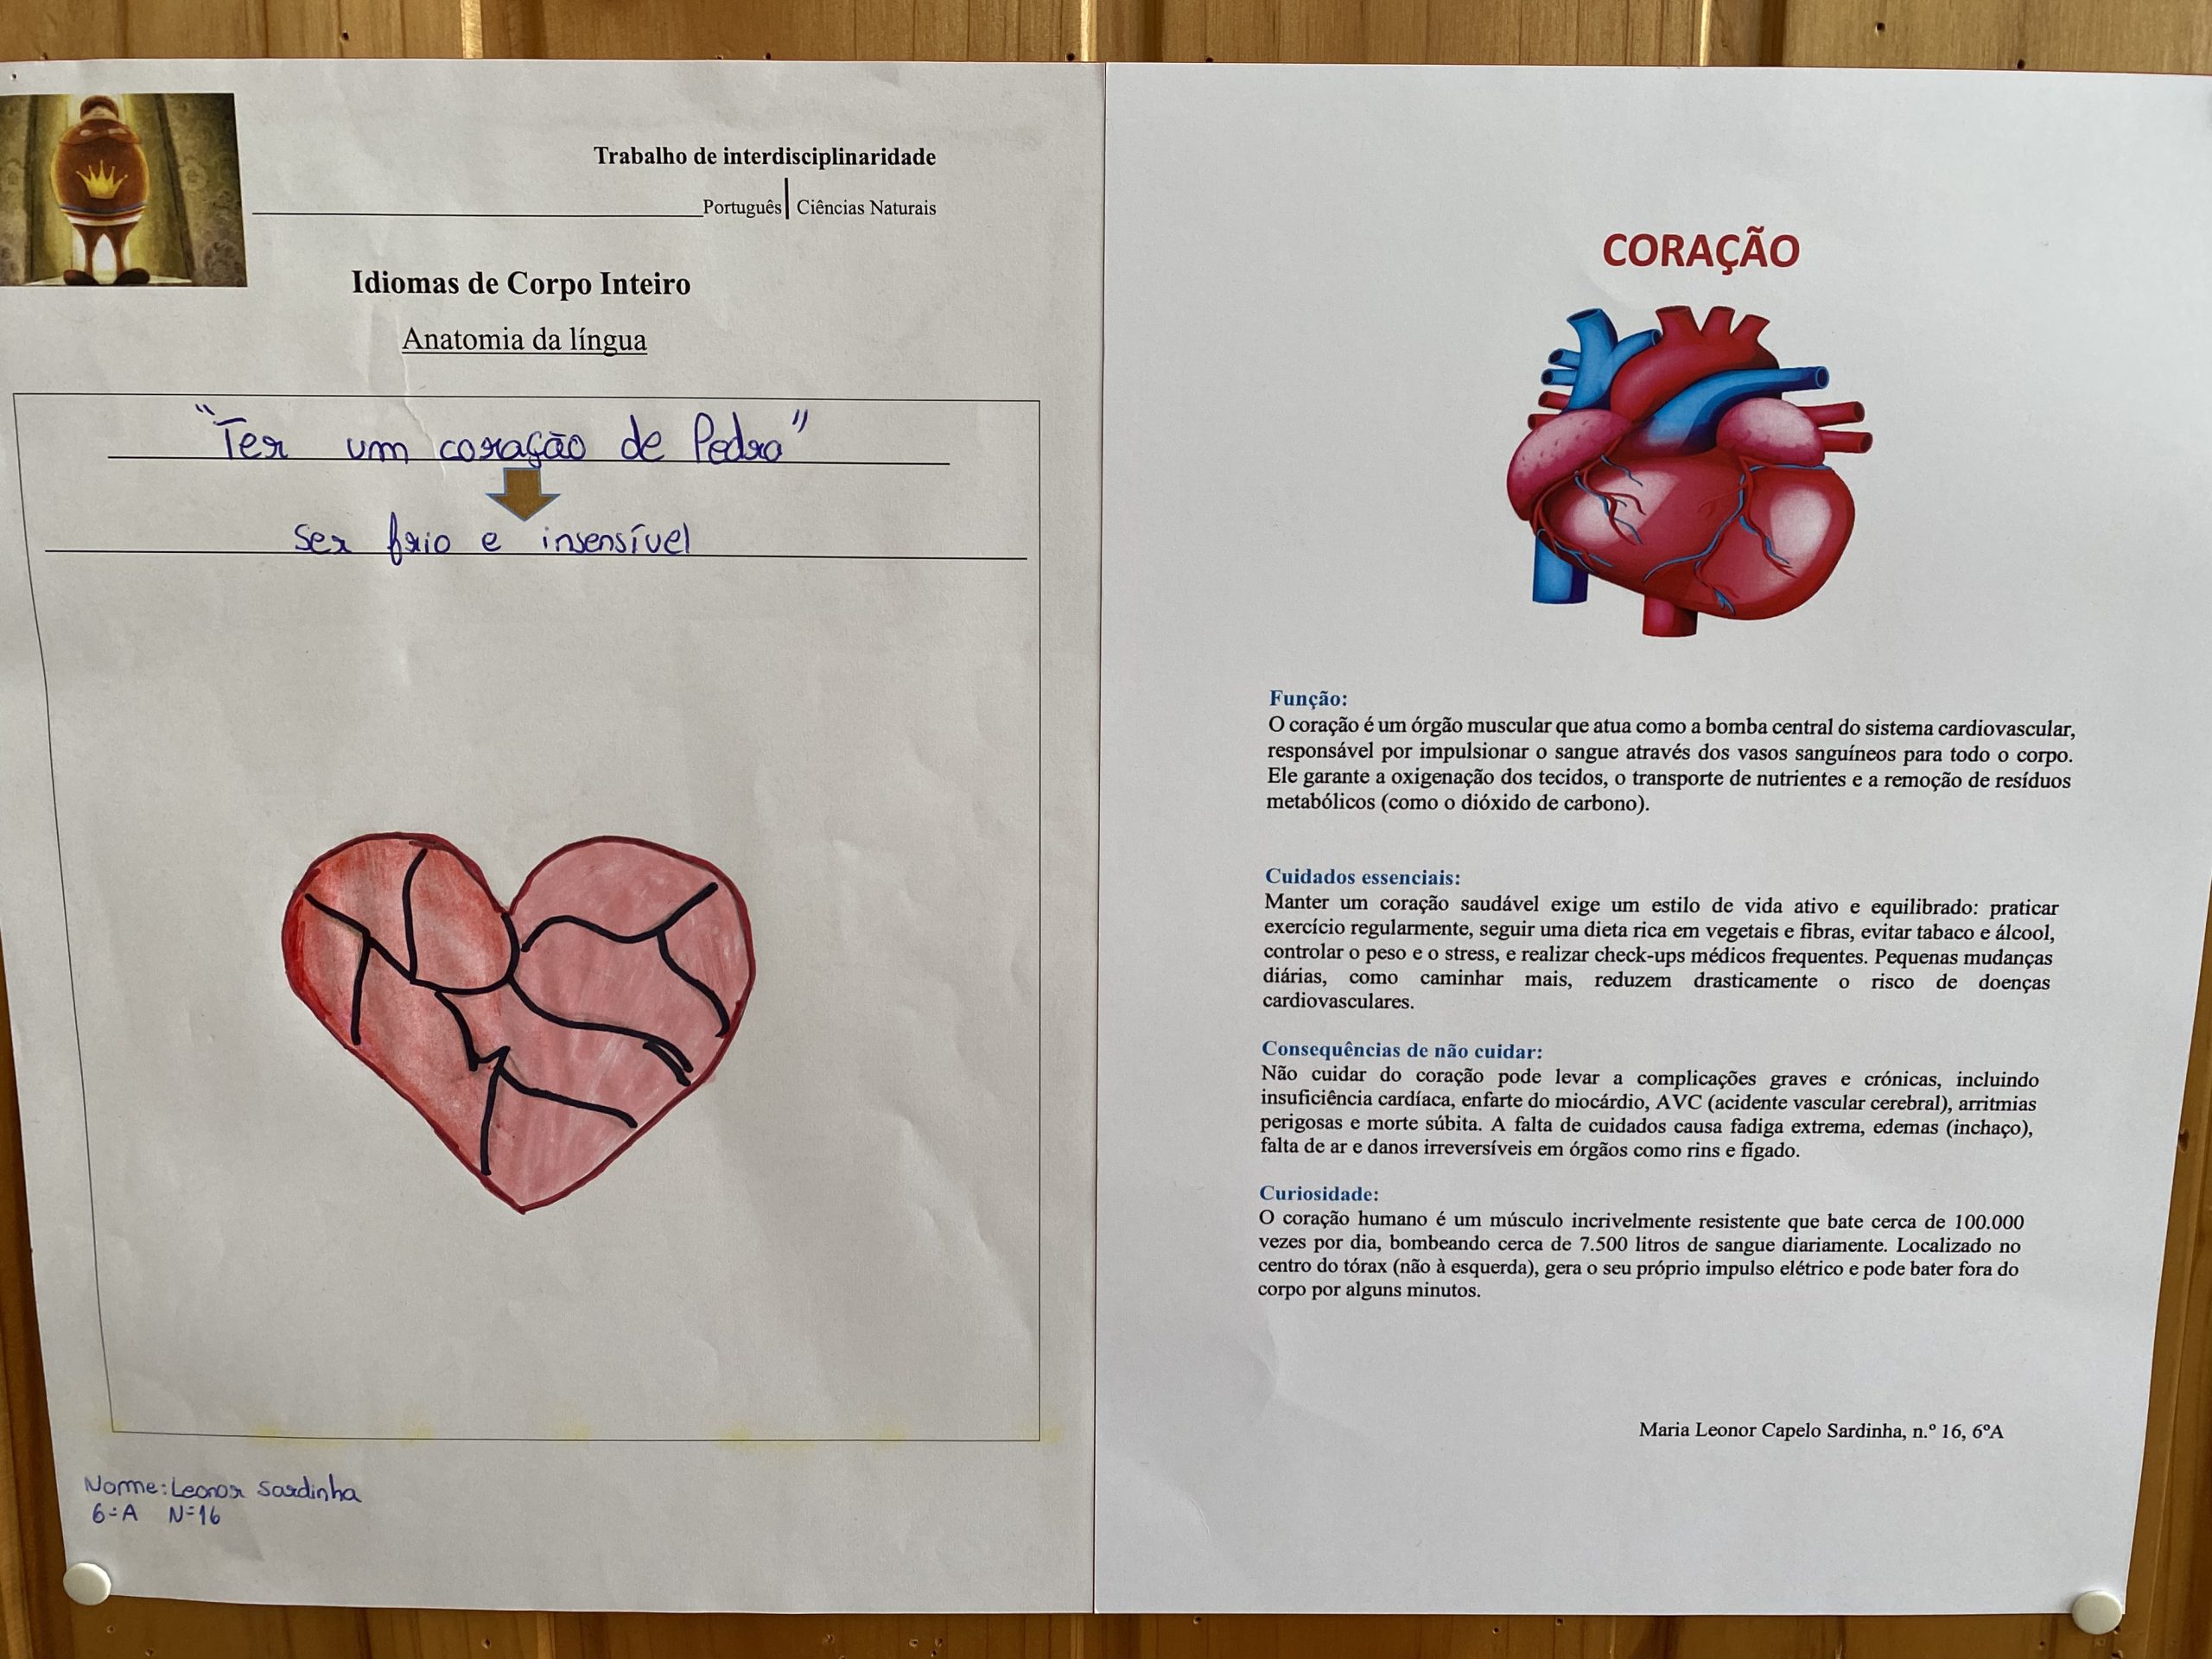 Trabalho de interdisciplinaridade
Português | Ciências Naturais
Idiomas de Corpo Inteiro
Anatomia da língua
"Ter um coração de Pedra"
Ser frio e insensível
Nome: Leonor Sardinha
6º A Nº 16
CORAÇÃO
Função:
O coração é um órgão muscular que atua como a bomba central do sistema cardiovascular,
responsável por impulsionar o sangue através dos vasos sanguíneos para todo o corpo.
Ele garante a oxigenação dos tecidos, o transporte de nutrientes e a remoção de resíduos
metabólicos (como o dióxido de carbono).
Cuidados essenciais:
Manter um coração saudável exige um estilo de vida ativo e equilibrado: praticar
exercício regularmente, seguir uma dieta rica em vegetais e fibras, evitar tabaco e álcool,
controlar o peso e o stress, e realizar check-ups médicos frequentes. Pequenas mudanças
diárias, como caminhar mais, reduzem drasticamente o risco de doenças
cardiovasculares.
Consequências de não cuidar:
Não cuidar do coração pode levar a complicações graves e crónicas, incluindo
insuficiência cardíaca, enfarte do miocárdio, AVC (acidente vascular cerebral), arritmias
perigosas e morte súbita. A falta de cuidados causa fadiga extrema, edemas (inchaço),
falta de ar e danos irreversíveis em órgãos como rins e fígado.
Curiosidade:
O coração humano é um músculo incrivelmente resistente que bate cerca de 100.000
vezes por dia, bombeando cerca de 7.500 litros de sangue diariamente. Localizado no
centro do tórax (não à esquerda), gera o seu próprio impulso elétrico e pode bater fora do
corpo por alguns minutos.
Maria Leonor Capelo Sardinha, n.º 16, 6ºA